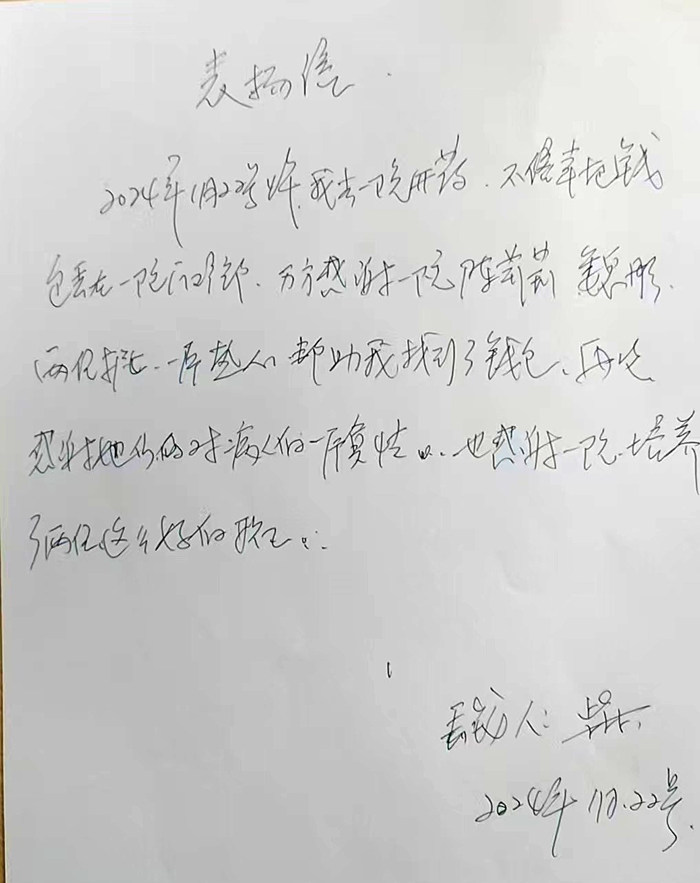 表扬信
2024年11月22号上午，我去一院开药，不慎把钱
包丢在一院门诊部，万分感谢一院陈莉莉 魏彤
两位护士，一片热心 帮助我找到了钱包，再次
感谢她们的对病人的一片真情。也感谢一院培养
了两位这么好的职工。
丢钱人：
2024年11月22号